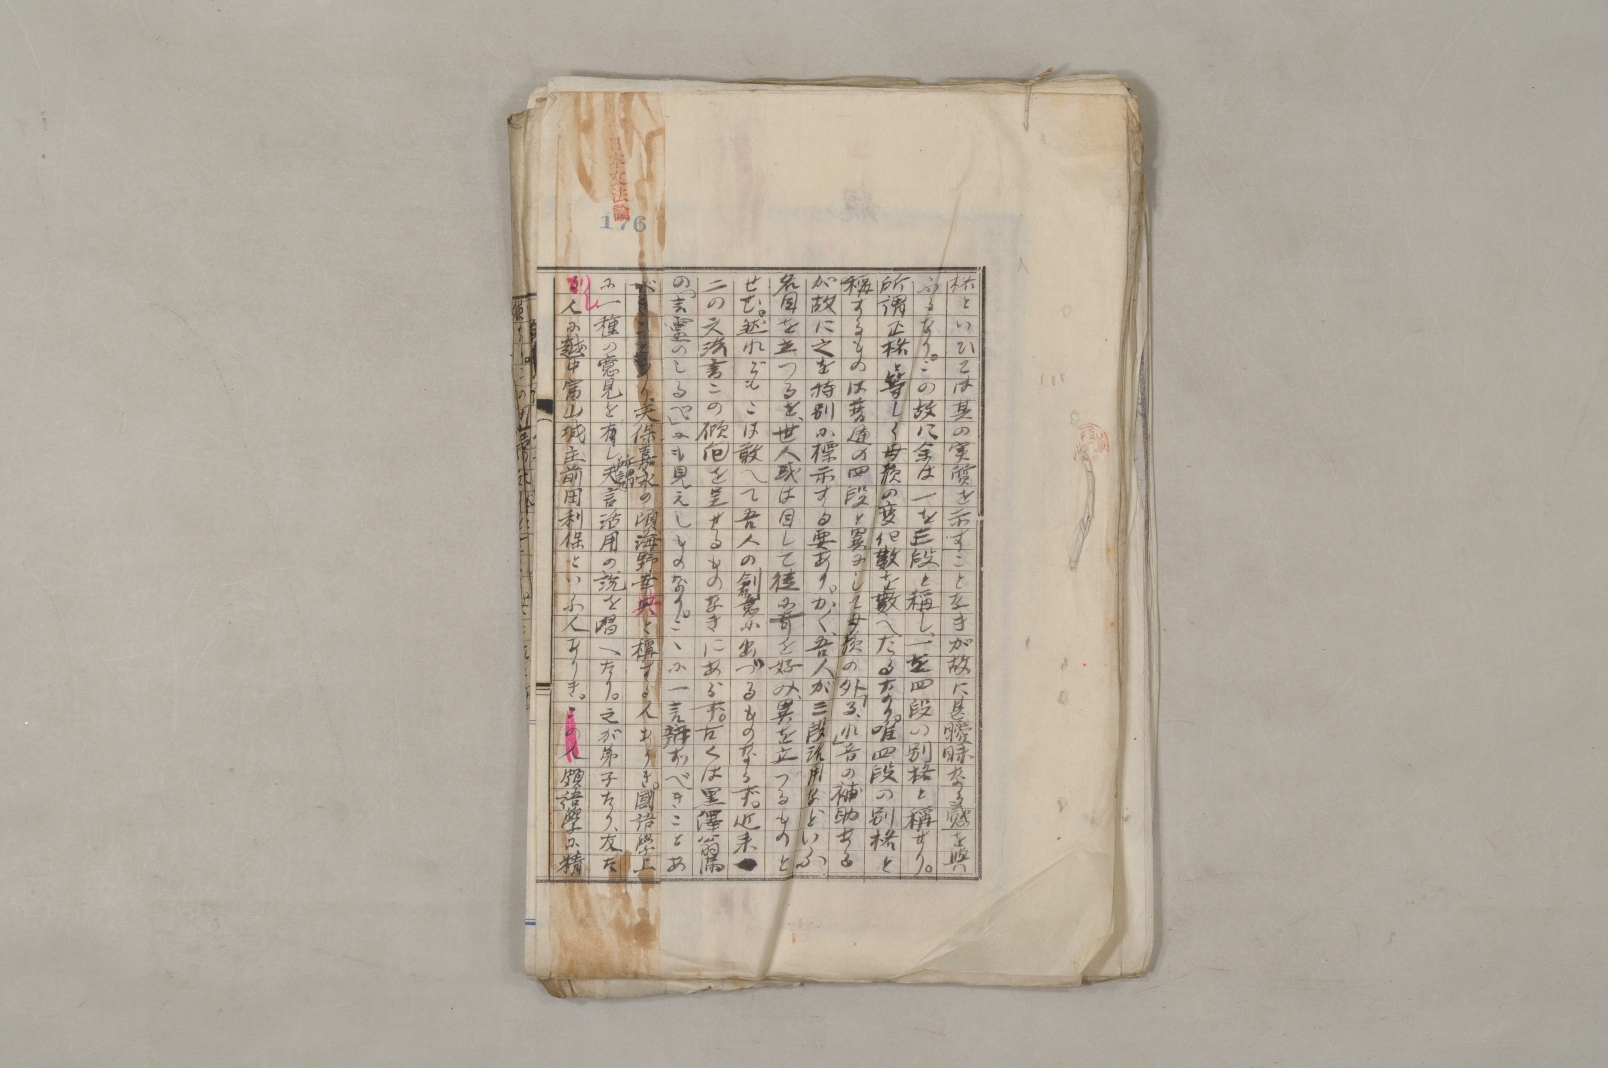 日本文法論
176
格といひては其の実質を示すことなきが故に甚曖昧なる感を與
ふるなり。この故に余は一を三段と称し、一を四段の別格と稱せり。
所謂正格と等しく母韻の変化数を數へたるなり。唯四段の別格と
稱するものは普通の四段と異にして母韻の外、る、れ音の補助ある
が故に之を特別に標示する要あり。かく吾人が三段活用などいふ
名目を立つるを、世人或は目して徒に奇を好み、異を立つるものと
せむ。然れどもこは敢へて吾人の創意に出づるものならず。近来
二の文法書この傾向を呈せるものなきにあらず。古くは黒澤翁満
の「言霊のしるべ」にも見えしものなり。こゝに一言辨ずべきことあ
り天保嘉永の頃海野幸典と稱する人ありき。國語學上
に一種の意見を有し所謂延言活用の説を唱へたり。之が弟子たり、友た
りし人に越中富山城主前田利保といふ人ありき。頗語學に精